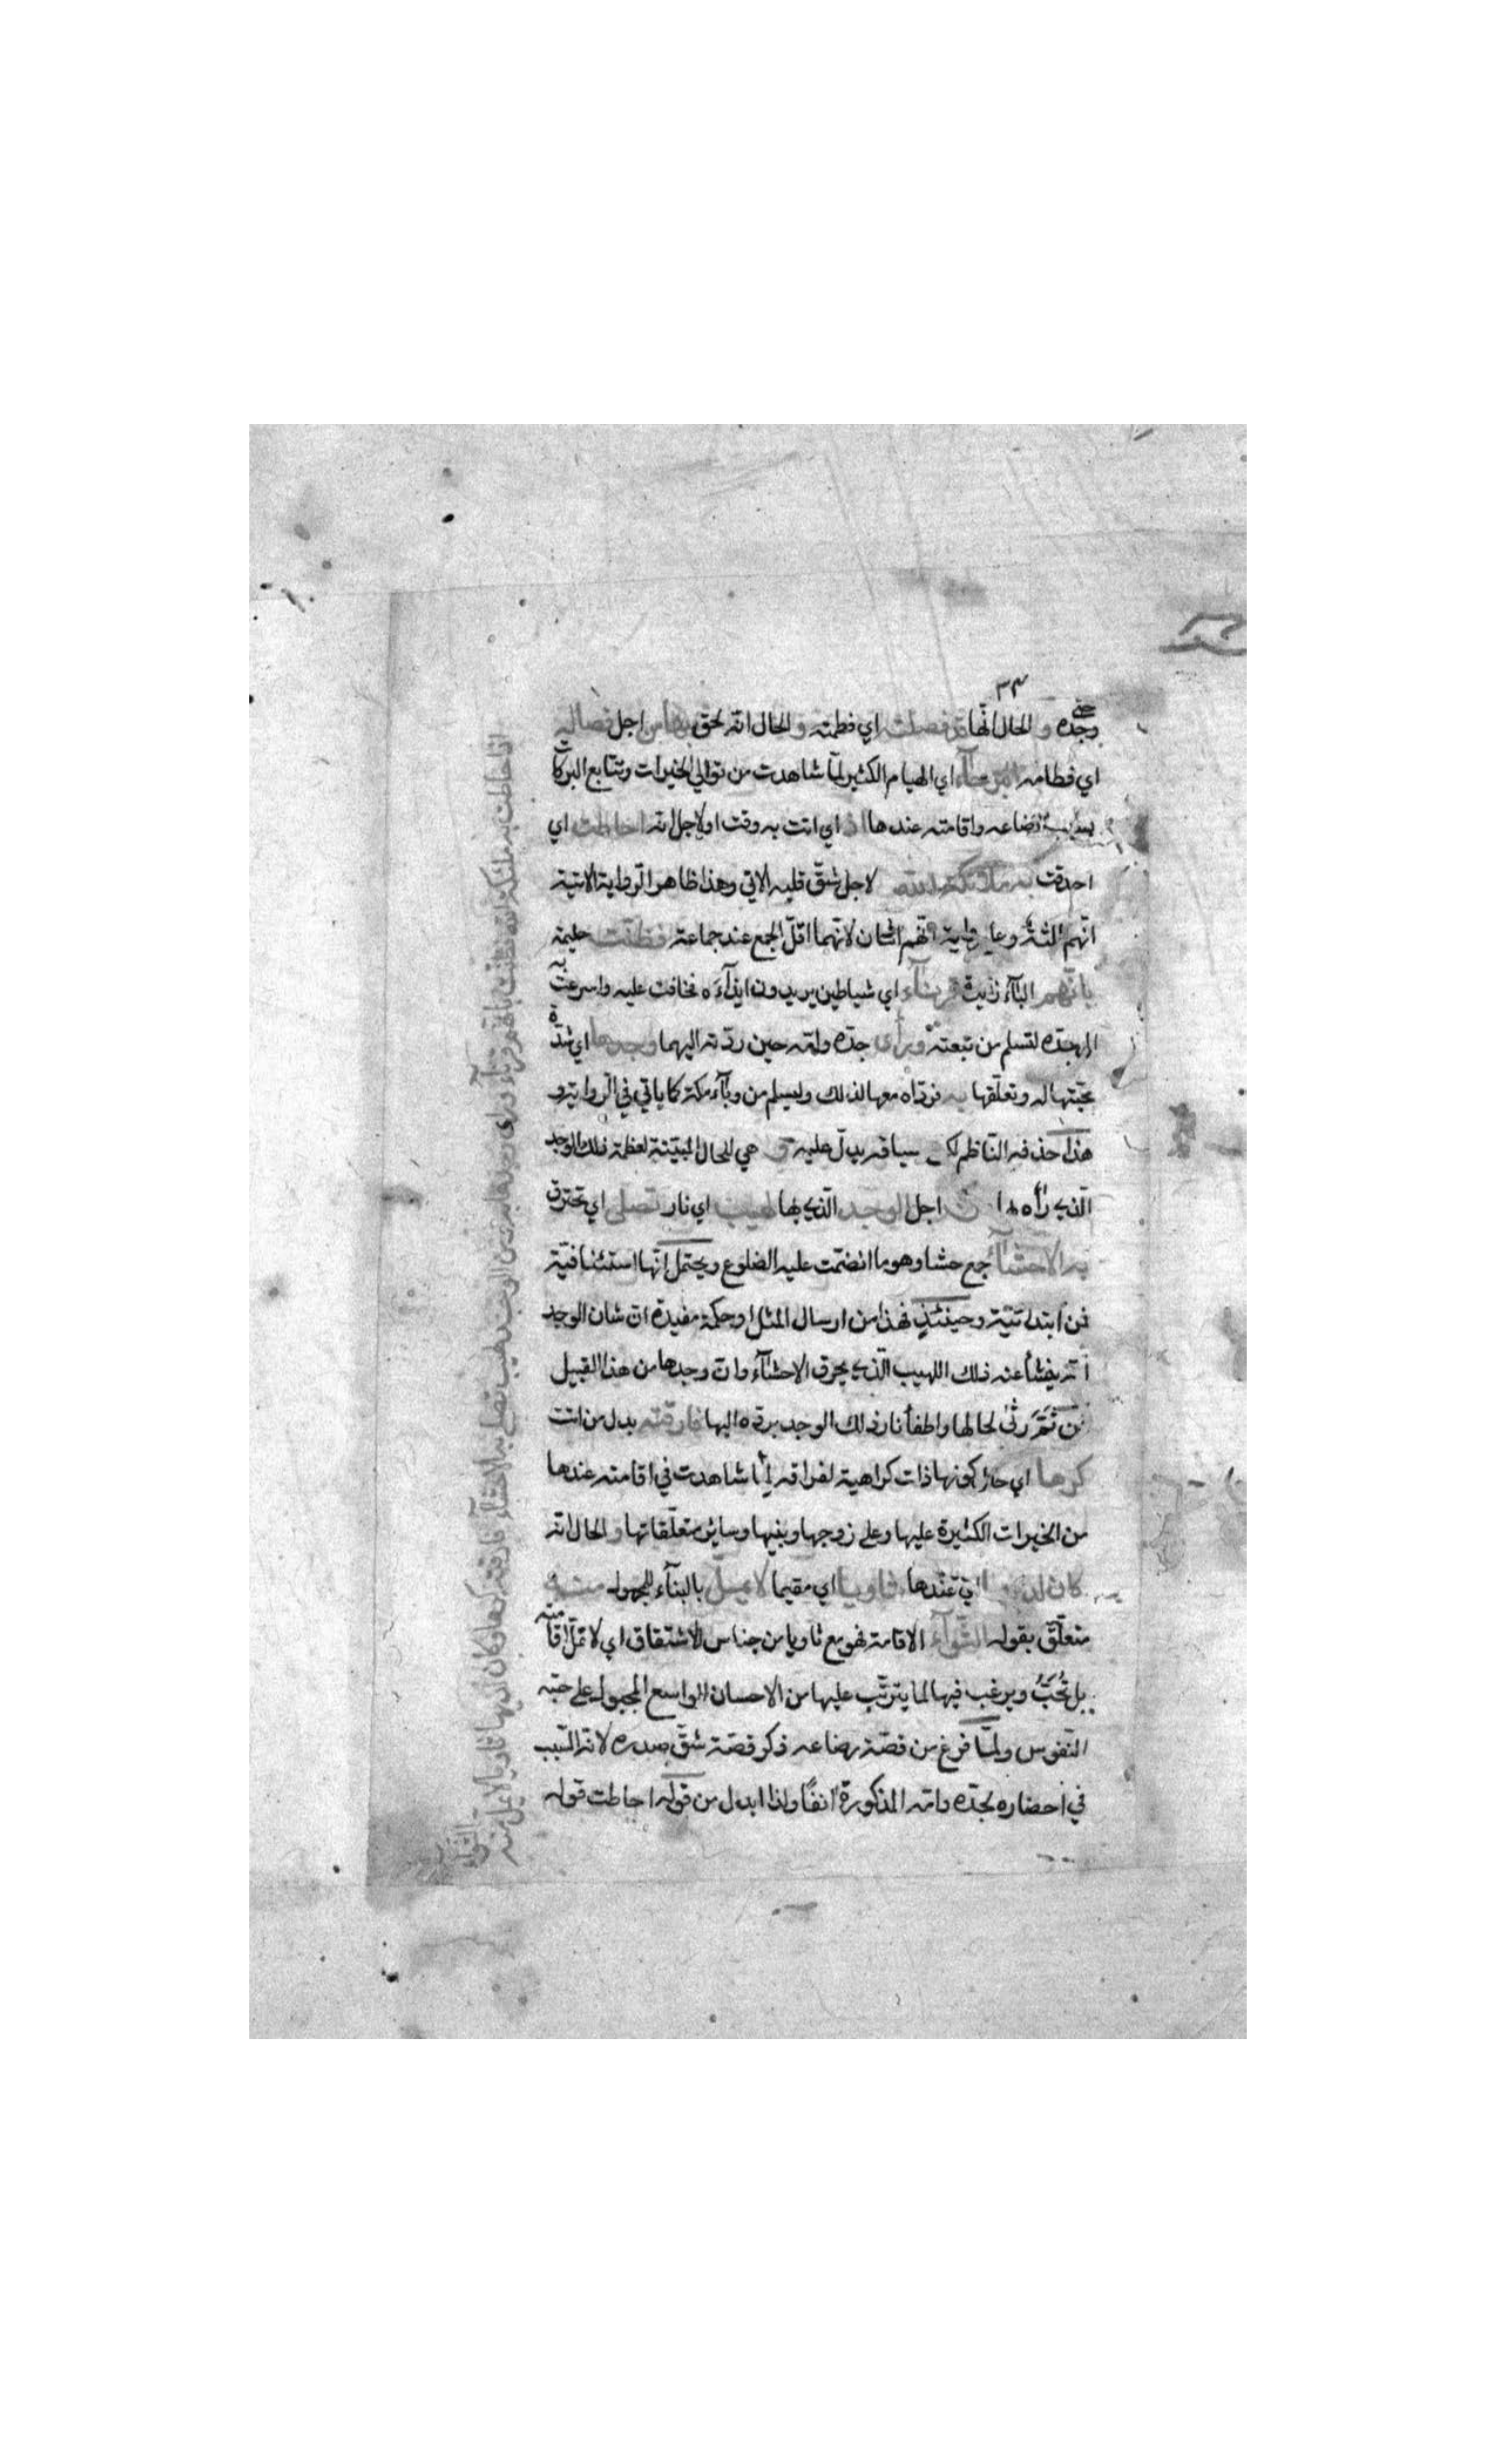 ٣٣
وجده و الحال انها قد فصلته اي فطمته و الحال انه لحق بها من اجل فصاله
اي فطامه البرحآء اي الهيام الكثير لمّا شاهدت من توالي الخيرات وتتابع البركات
بسبب رضاعه واقامته عندها اذ اي اتت به وقت او لاجل انه احاطت اي
احدقت به ملائكة الله لاجل شقّ قلبه الاتي وهذا ظاهر الرواية الاتية
انهم ثلثة وعلى رواية انهم اثنان لانهما اقلّ الجمع عند جماعة فظنّت حليمة
بانّهم البآء زايدة قرنآء اي شياطين يريدون ايذآءه فخافت عليه واسرعت به
الى جده لتسلم من تبعته و رأى جدّه وامه حين ردّته اليهما وجدها اي شدّة
محبّتها له وتعلّقها به فردّاه معها لذلك وليسلم من وبآء مكة كما ياتي في الرواية و
هذا حذفه الناظم لكن سياقه يدلّ عليه و هي للحال المبيّنة لعظمة ذلك الوجد
الّذي رأاه لها من اجل الوجد الّذي بها لهيب اي نار تصلى اي تحترق
به الاحشآء جمع حشا وهو ما انضمّت عليه الضلوع ويحتمل انّها استئنافيّة
فمن ابتدائيّة وحينئذٍ فهذا من ارسال المثل او حكمة مفيدة ان شان الوجد
انه ينشأ عنه ذلك اللهيب الّذي يحرق الاحشآء وانّ وجدها من هذا القبيل
فمن ثَمَّ رثى لحالها واطفأ نار ذلك الوجد بردّه اليها فارقته بدل من اتت
كرها اي حال كونها ذات كراهية لفراقه لما شاهدت في اقامته عندها
من الخيرات الكثيرة عليها وعلى زوجها وبنيها وسائر متعلّقاتها و الحال انه
كان لديها اي عندها ثاويا اي مقيما لا يملّ بالبنآء للمجهول منه
متعلّق بقوله الثوآء الاقامة فهو مع ثاويا من جناس الاشتقاق اي لا تملّ اقامته
بل تُحَبّ ويرغب فيها لما يترتّب عليها من الاحسان الواسع المجبول على حبّه
النّفوس ولمّا فرغ من قصّة رضاعه ذكر قصّة شقّ صدره لانه السّبب
في احضاره لجدّه وامه المذكورة انفًا ولذا ابدل من قوله احاطت قوله
اذا حاطت به ملئكة الله فظنت بانهم قرنآء وراى وجدها به ومن الوجد لهيب تصلى به الاحشآء فارقته كرها وكان لديها ثاويا لا يمل منه
الثوآء